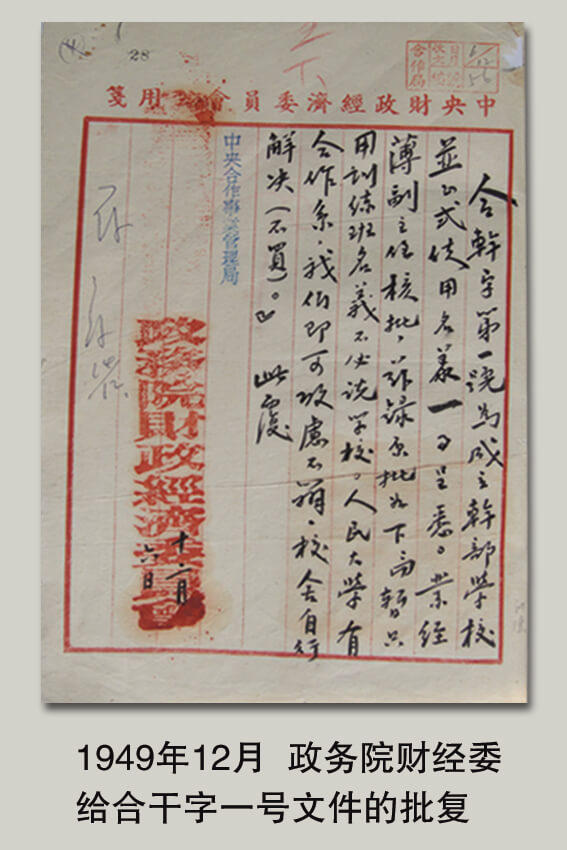 28
中央財政經濟委員會 用箋
合幹字第一號為成立幹部學校
並正式使用名義一事呈悉。業經
薄副主任核批，茲錄原批如下：『暫只
用訓練班名義不必說學校。人民大學有
合作系，我們即可攷慮不辦，校舍自行
解决（不買）。』 此覆
中央合作事業管理局
政務院財政經濟委員會
十二月
六日
1949年12月 政务院财经委
给合干字一号文件的批复